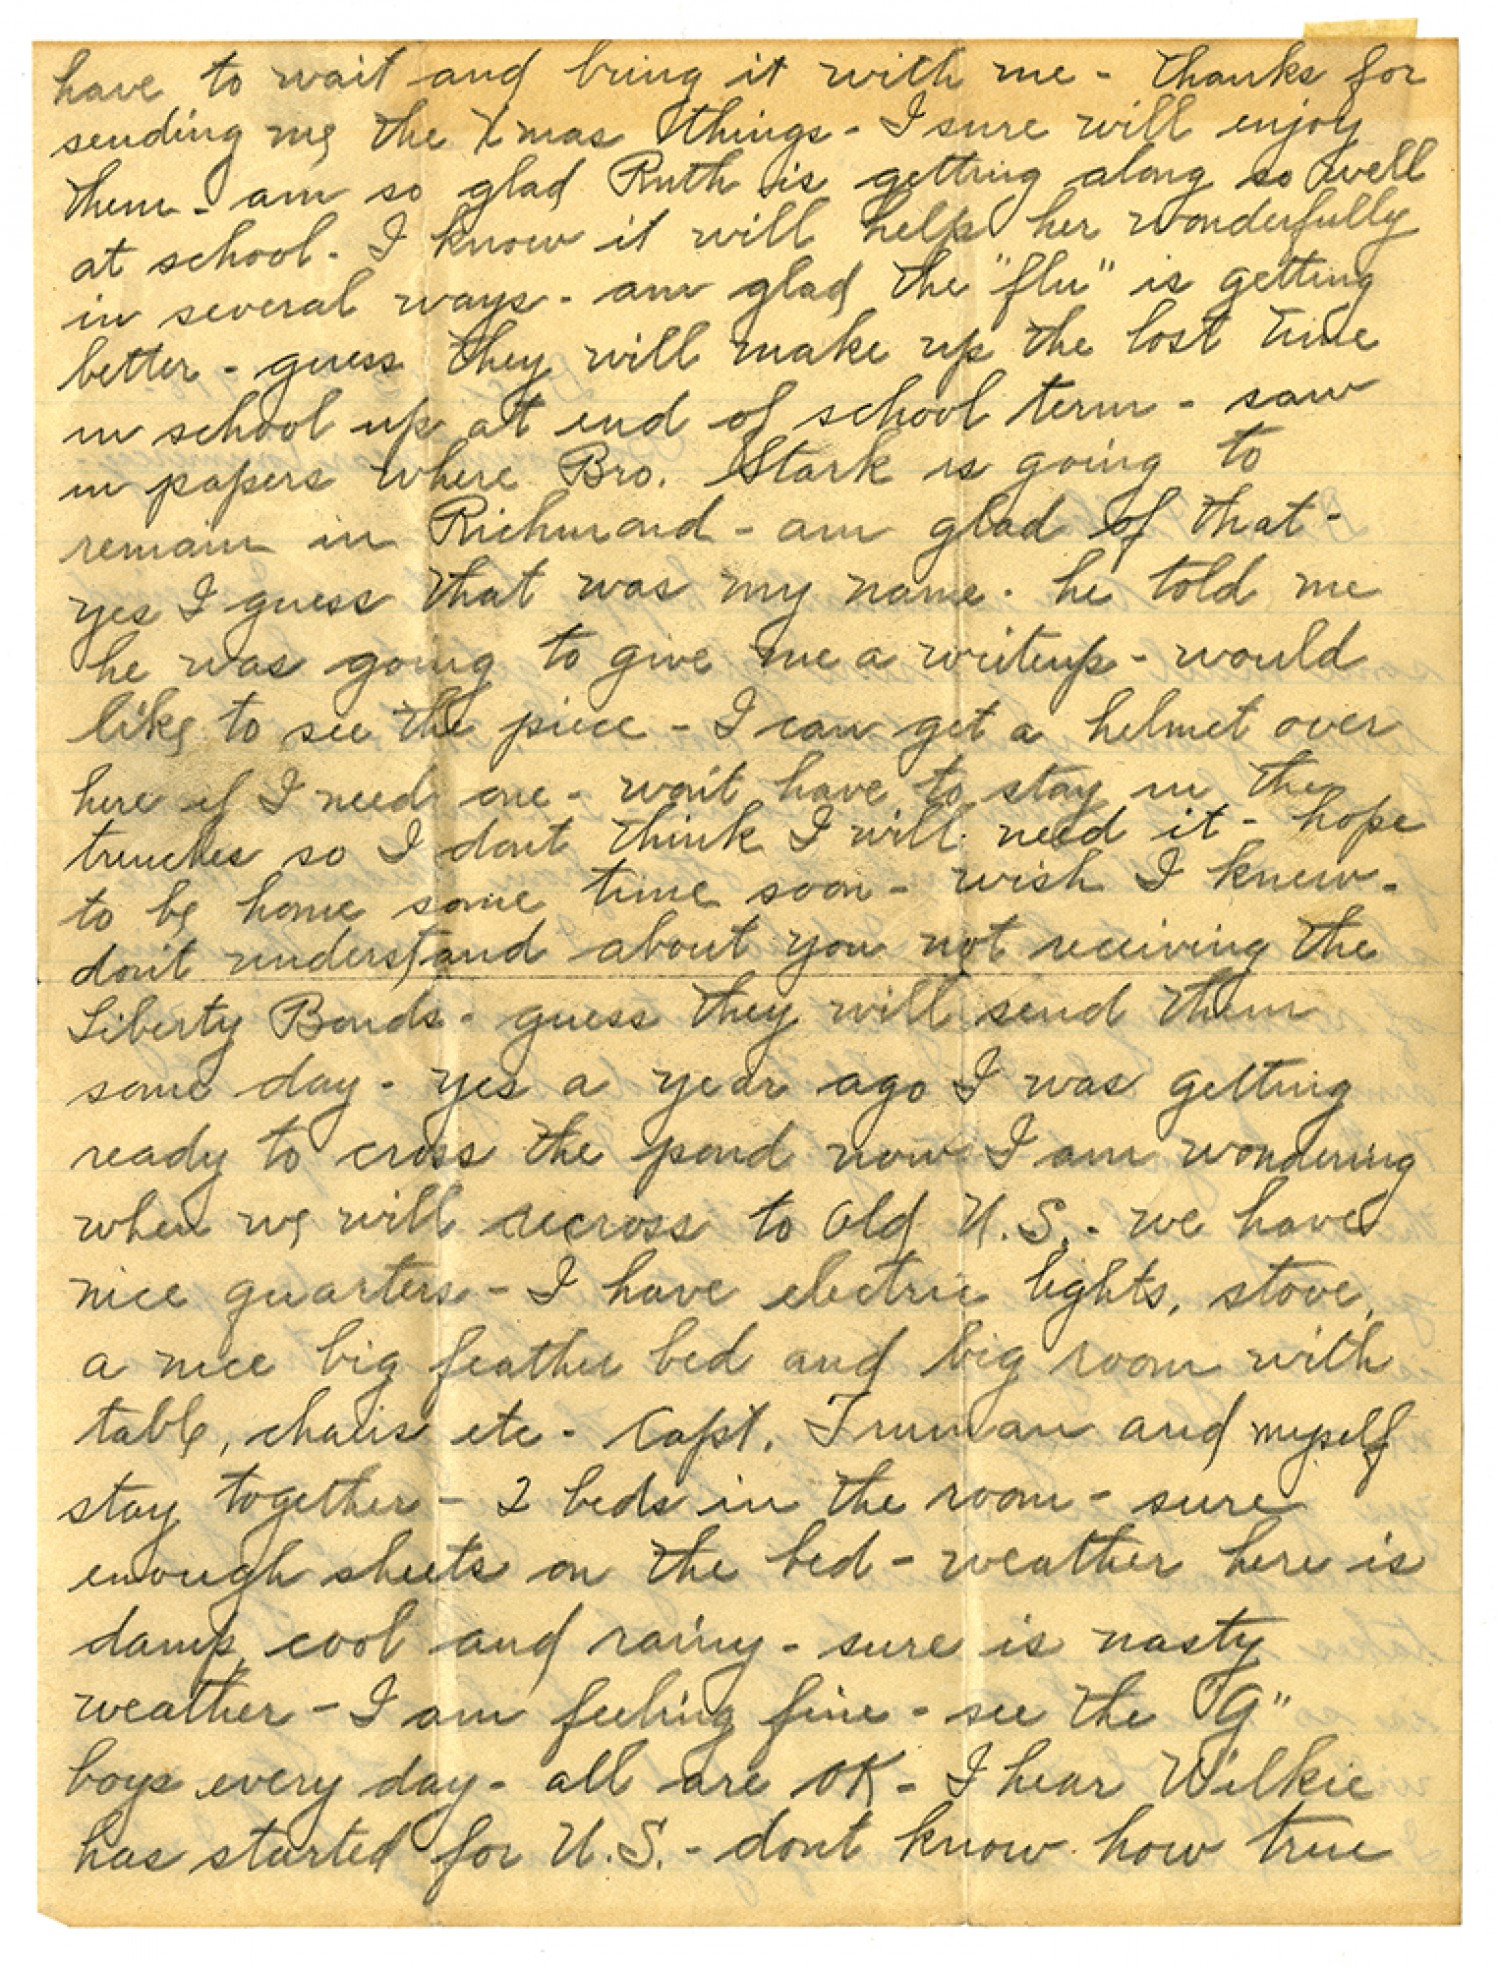 have to wait and bring it with me - thanks for
sending me the Xmas things - I sure will enjoy
them - am so glad Ruth is getting along so well
at school - I know it will help her wonderfully
in several ways - am glad the "flu" is getting
better - guess they will make up the lost time
in school up at end of school term - saw
in papers where Bro. Stark is going to
remain in Richmond - am glad of that -
yes I guess that was my name - he told me
he was going to give me a writeup - would
like to see the piece - I can get a helmet over
here if I need one - won't have to stay in the
trenches so I dont think I will need it - hope
to be home some time soon - wish I knew -
don't understand about you not receiving the
Liberty Bonds - guess they will send them
some day - yes a year ago I was getting
ready to cross the pond now I am wondering
when we will recross to Old U.S. - we have
nice quarters - I have electric lights, stove,
a nice big feather bed and big room with
table, chairs etc - Capt. Truman and myself
stay together - 2 beds in the room - sure
enough sheets on the bed - weather here is
damp, cool and rainy - sure is nasty
weather - I am feeling fine - see the "G"
boys every day - all are OK - I hear Wilkie
has started for U.S. - dont know how true